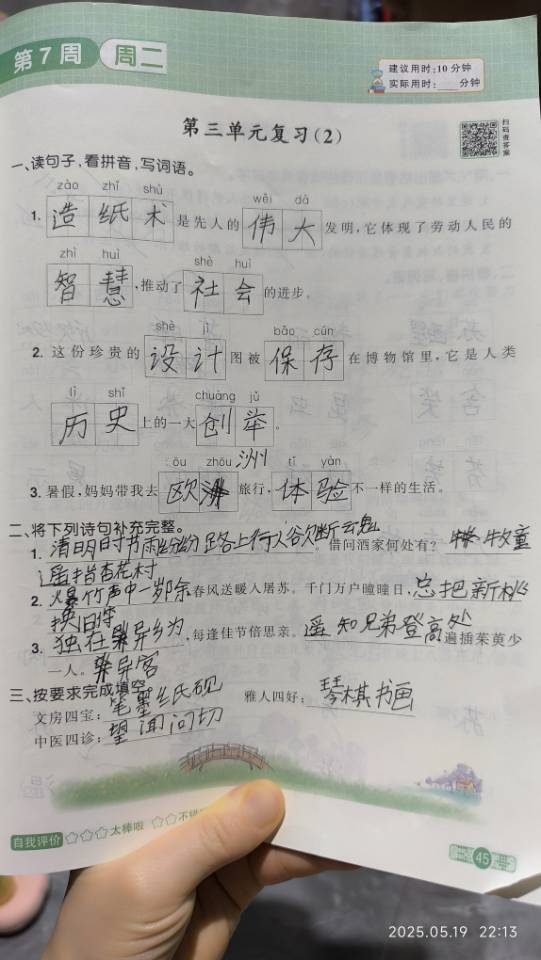 第7周 周二
建议用时:10分钟
实际用时:____分钟
第三单元复习(2)
扫码查答案
一、读句子,看拼音,写词语。
zào zhǐ shù wěi dà
1. 造纸术是先人的伟大发明,它体现了劳动人民的
zhì huì shè huì
智慧,推动了社会的进步。
shè jì bǎo cún
2. 这份珍贵的设计图被保存在博物馆里,它是人类
lì shǐ chuàng jǔ
历史上的一大创举。
ōu zhōu tǐ yàn
洲
3. 暑假,妈妈带我去欧旅行,体验不一样的生活。
二、将下列诗句补充完整。
1. 清明时节雨纷纷路上行人欲断云鬼。借问酒家何处有?牧童
遥指杏花村
2. 爆竹声中一岁除,春风送暖入屠苏。千门万户曈曈日,总把新桃
换旧符
3. 独在异乡为,每逢佳节倍思亲。遥知兄弟登高处,遍插茱萸少
一人。异客
三、按要求完成填空。
文房四宝:笔墨纸砚 雅人四好:琴棋书画
中医四诊:望闻问切
自我评价 ☆☆☆太棒啦 ☆☆不错
45
2025.05.19 22:13